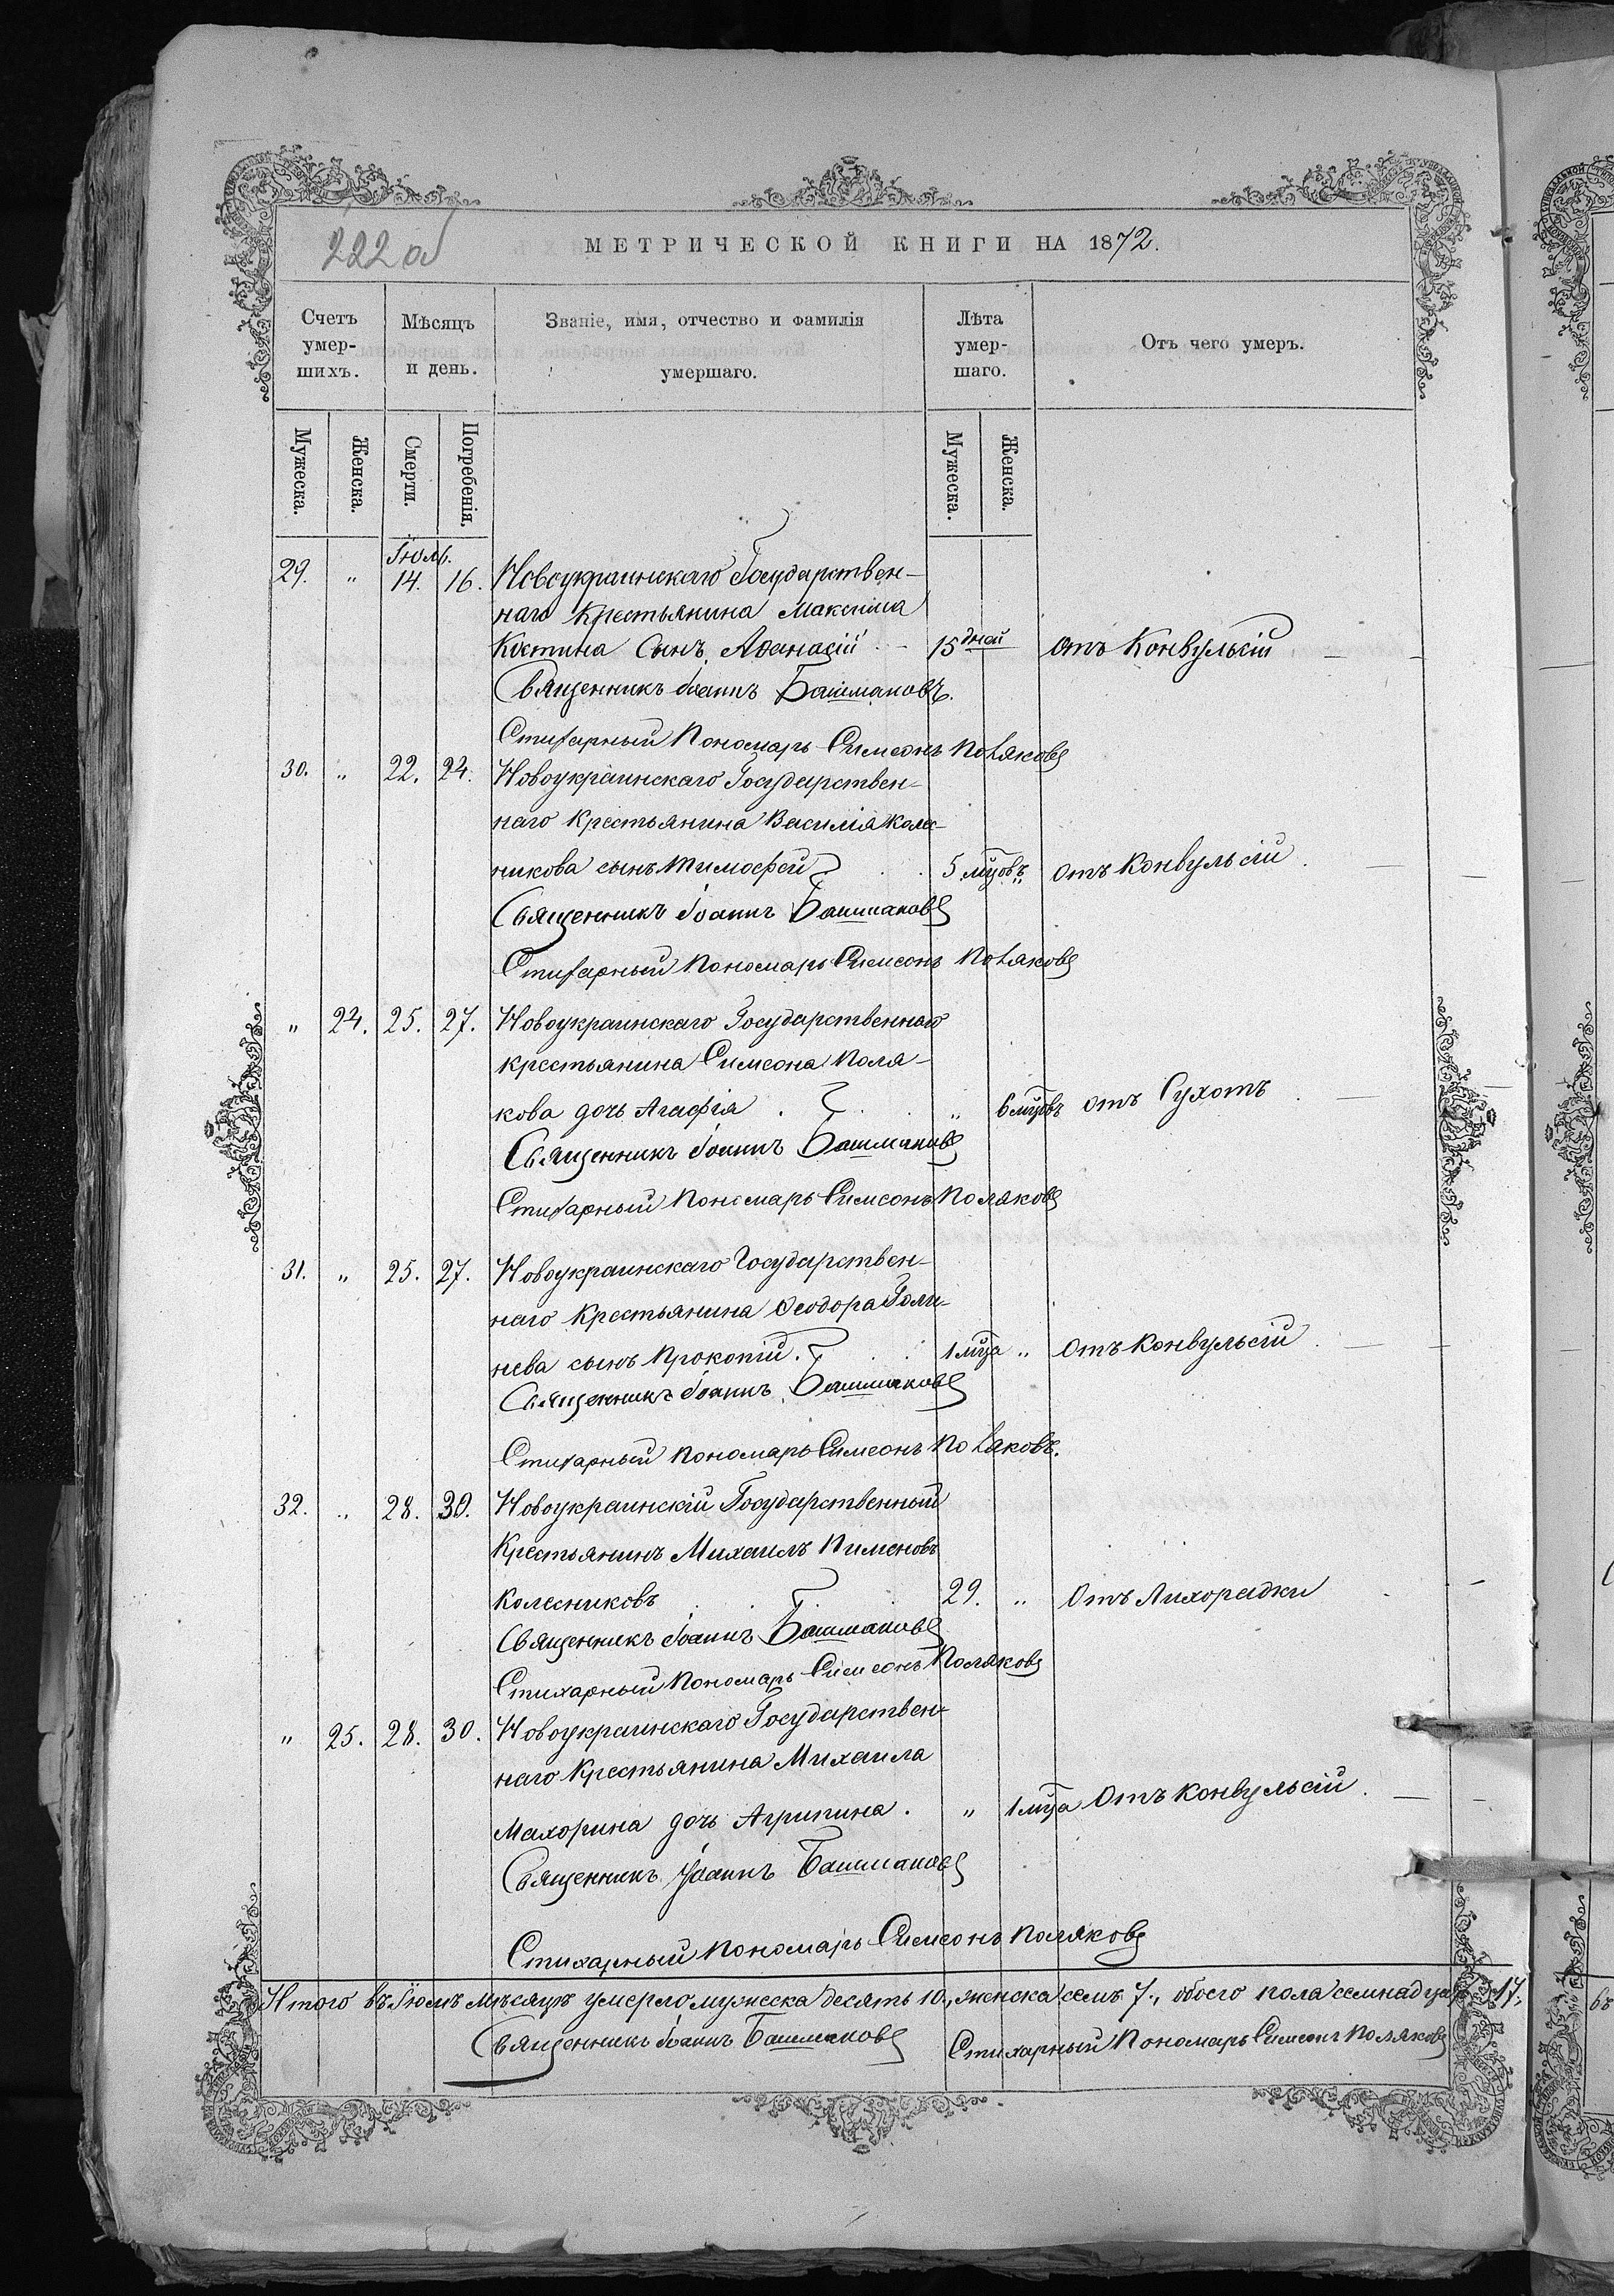 222 об
МЕТРИЧЕСКОЙ КНИГИ НА 1872.
Счетъ умер-шихъ.
Мѣсяцъ и день.
Званіе, имя, отчество и фамилія умершаго.
Лѣта умер-шаго.
Отъ чего умеръ.
Мужеска.
Женска.
Смерти.
Погребенія.
Мужеска.
Женска.
Іюль.
29. " 14. 16. Новоукраинскаго Государствен-
наго Крестьянина Максима
Костина Сынъ Аѳанасій 15 дней отъ Конвульсій
Священникъ Іоаннъ Башмаковъ.
Стихарный Пономарь Симеонъ Поляковъ
30. " 22. 24. Новоукраинскаго Государствен-
наго Крестьянина Василія Колес-
никова сынъ Тимофей 5 мцовъ " отъ Конвульсій
Священникъ Іоаннъ Башмаковъ
Стихарный Пономарь Симеонъ Поляковъ
" 24. 25. 27. Новоукраинскаго Государственнаго
крестьянина Симеона Поля-
кова дочь Агафія " 6 мцовъ отъ Сухотъ
Священникъ Іоаннъ Башмаковъ
Стихарный Пономарь Симеонъ Поляковъ
31. " 25. 27. Новоукраинскаго Государствен-
наго Крестьянина Ѳеодора Голи-
нева сынъ Прокопій. 1 мца " Отъ Конвульсій
Священникъ Іоаннъ Башмаковъ
Стихарный Пономарь Симеонъ Поляковъ.
32. " 28. 30. Новоукраинскій Государственный
Крестьянинъ Михаилъ Пименовъ
Колесниковъ 29. " Отъ Лихорадки
Священникъ Іоаннъ Башмаковъ
Стихарный Пономарь Симеонъ Поляковъ
" 25. 28. 30. Новоукраинскаго Государствен-
наго Крестьянина Михаила
Махорина дочь Агрипина. " 1 мца Отъ Конвульсій
Священникъ Іоаннъ Башмаковъ
Стихарный Пономарь Симеонъ Поляковъ
Итого въ Іюлѣ мѣсяцѣ умерло мужеска десять 10., женска семь 7., обоего пола семнадцать 17.
Священникъ Іоаннъ Башмаковъ Стихарный Пономарь Симеонъ Поляковъ